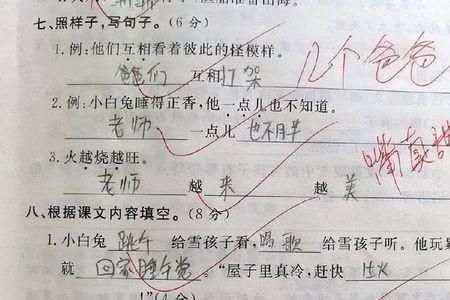 七、照样子,写句子。(6分)
1. 例:他们互相看着彼此的怪模样。
爸爸们 互相打架 几个爸爸
2. 例:小白兔睡得正香,他一点儿也不知道。
老师 一点儿 也不月半
3. 火越烧越旺。 嘴真甜
老师 越 来 越 美
八、根据课文内容填空。(8分)
1. 小白兔 跳午 给雪孩子看, 唱歌 给雪孩子听。他玩
就 回家睡午觉 。“屋子里真冷,赶快
!”(4分)